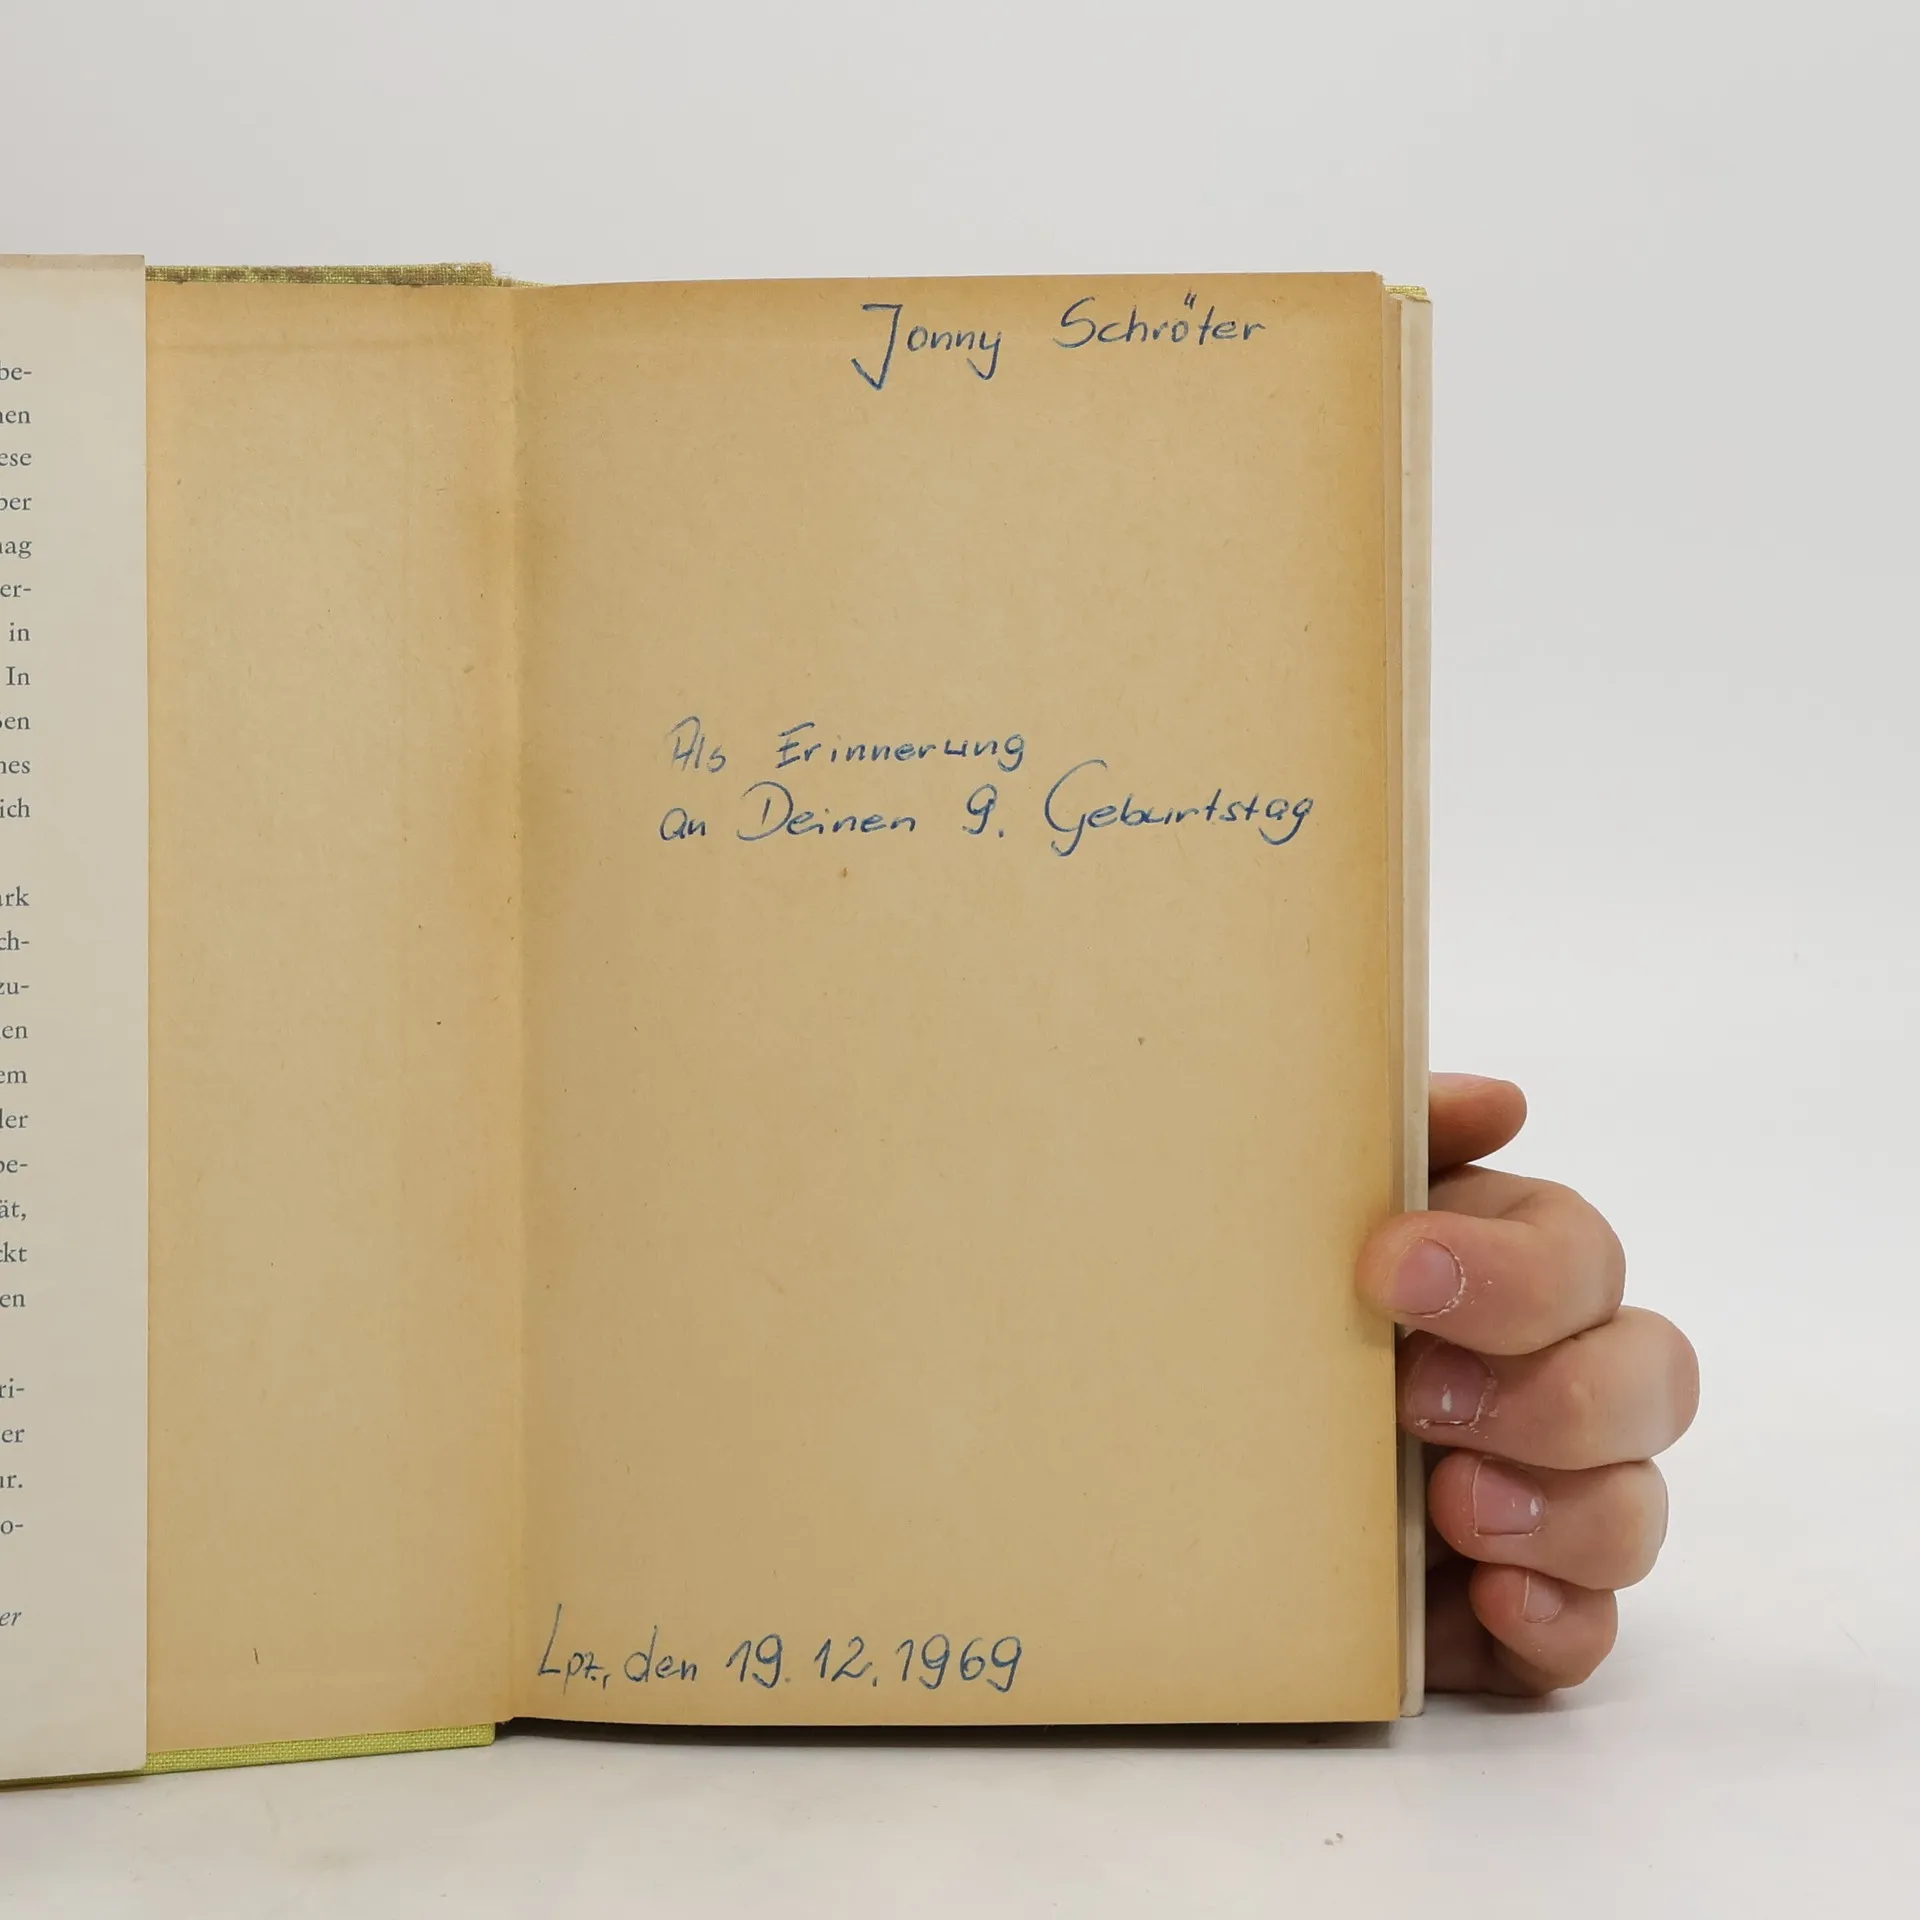 be-
nen
ese
ber
nag
er-
in
In
ßen
nes
ich
ark
ch-
zu-
en
em
der
be-
ät,
ckt
en
ri-
er
ur.
o-
er
Jonny Schröter
Als Erinnerung
an Deinen 9. Geburtstag
Lpz., den 19.12.1969